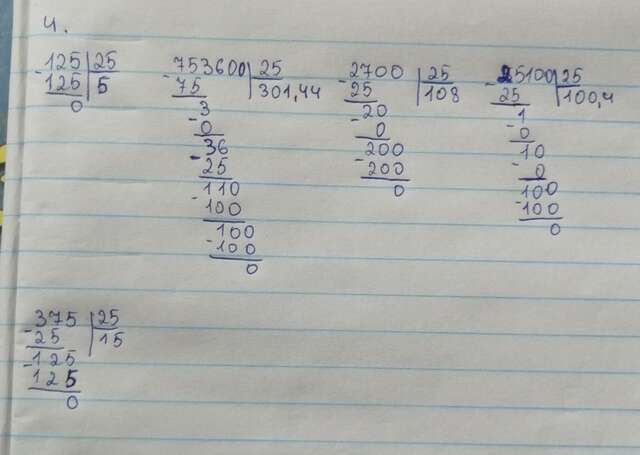 4.
-125 | 25
125 | 5
0
-753600 | 25
75 | 301,44
3
-0
36
-25
110
-100
100
-100
0
-2700 | 25
25 | 108
-20
0
200
-200
0
-25100 | 25
25 | 100,4
1
-0
10
-0
100
-100
0
-375 | 25
25 | 15
-125
125
0